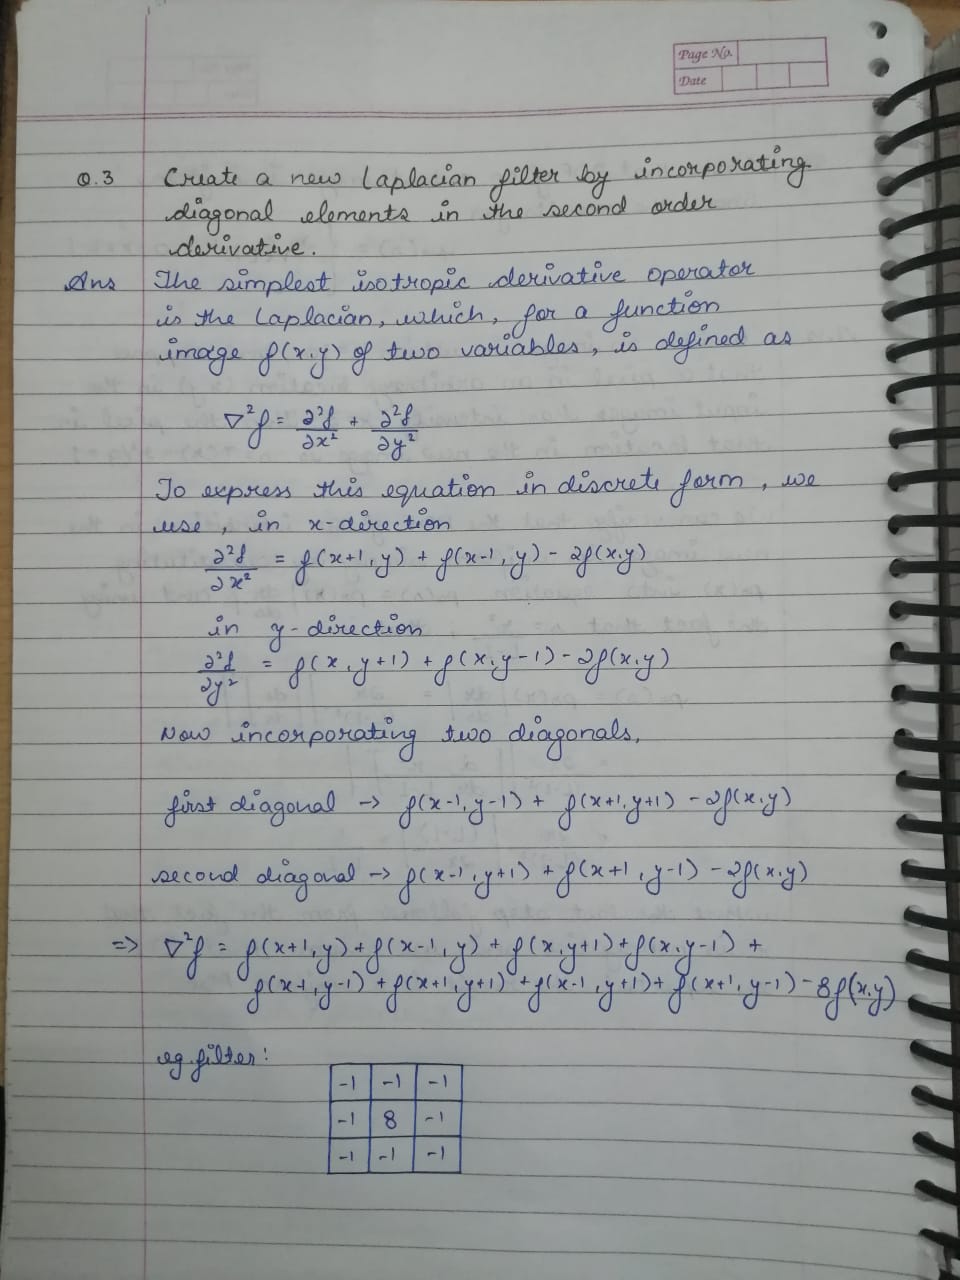 Page No.
Date
Q.3 Create a new Laplacian filter by incorporating
diagonal elements in the second order
derivative.
Ans The simplest isotropic derivative operator
is the Laplacian, which, for a function
image f(x,y) of two variables, is defined as
∇²f = ∂²f/∂x² + ∂²f/∂y²
To express this equation in discrete form, we
use, in x-direction
∂²f/∂x² = f(x+1,y) + f(x-1,y) - 2f(x,y)
in y-direction
∂²f/∂y² = f(x,y+1) + f(x,y-1) - 2f(x,y)
Now incorporating two diagonals,
first diagonal → f(x-1,y-1) + f(x+1,y+1) - 2f(x,y)
second diagonal → f(x-1,y+1) + f(x+1,y-1) - 2f(x,y)
=> ∇²f = f(x+1,y) + f(x-1,y) + f(x,y+1) + f(x,y-1) +
f(x-1,y-1) + f(x+1,y+1) + f(x-1,y+1) + f(x+1,y-1) - 8f(x,y)
eg. filter:
-1 -1 -1
-1 8 -1
-1 -1 -1